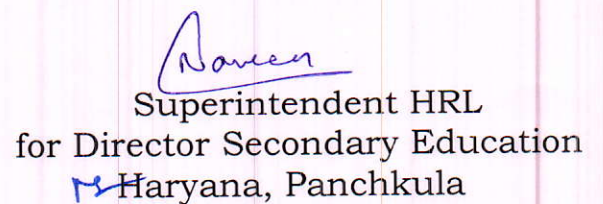 Naveen
Superintendent HRL
for Director Secondary Education
Haryana, Panchkula